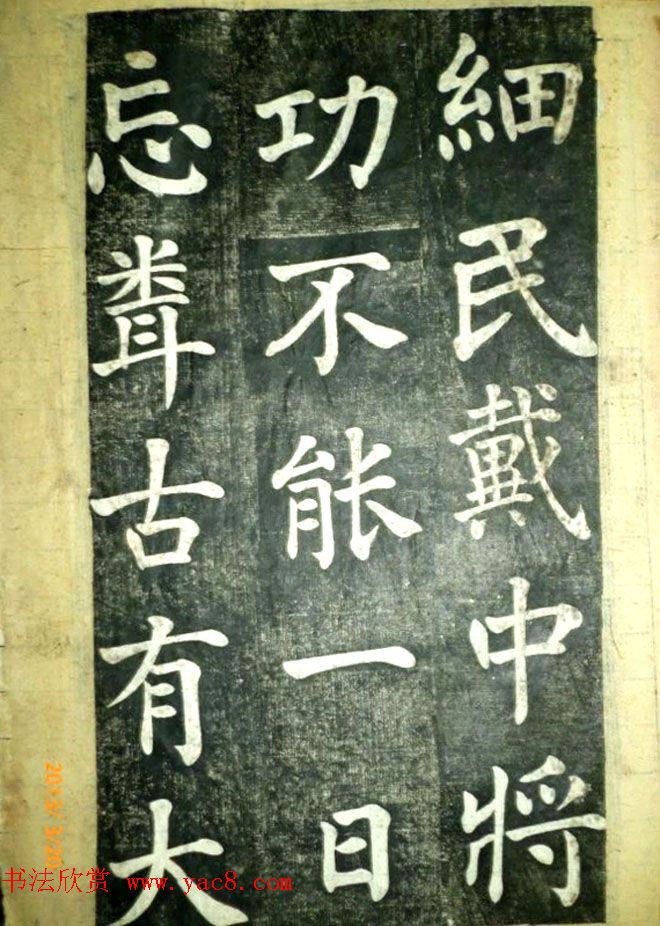 細民戴中將
功不能一日
忘古有大
2013/ 3/20
书法欣赏 www.yac8.com